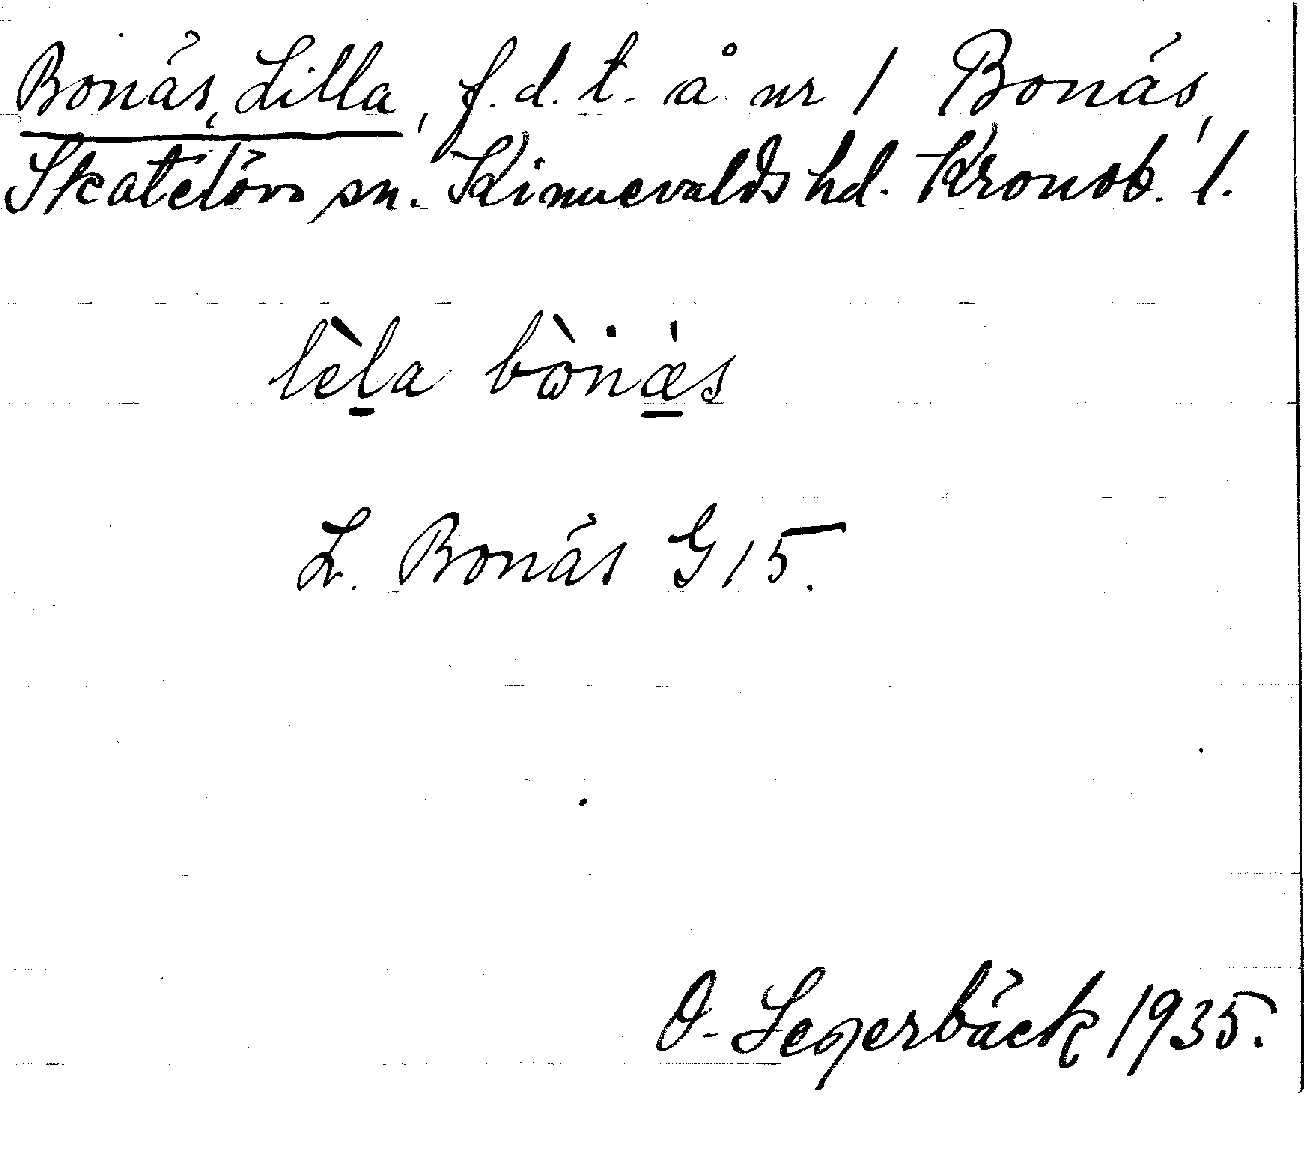 Bonäs, Lilla, f.d. t. å nr 1 Bonäs,
Skatelövs sn. Kinnevalds hd. Kronob. l.
lèla bònæs
L. Bonäs G 15.
O. Segerbäck 1935.